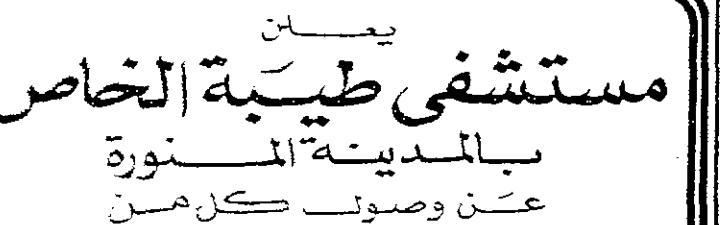 يعلن
مستشفى طيبة الخاص
بالمدينة المنورة
عن وصول كل من